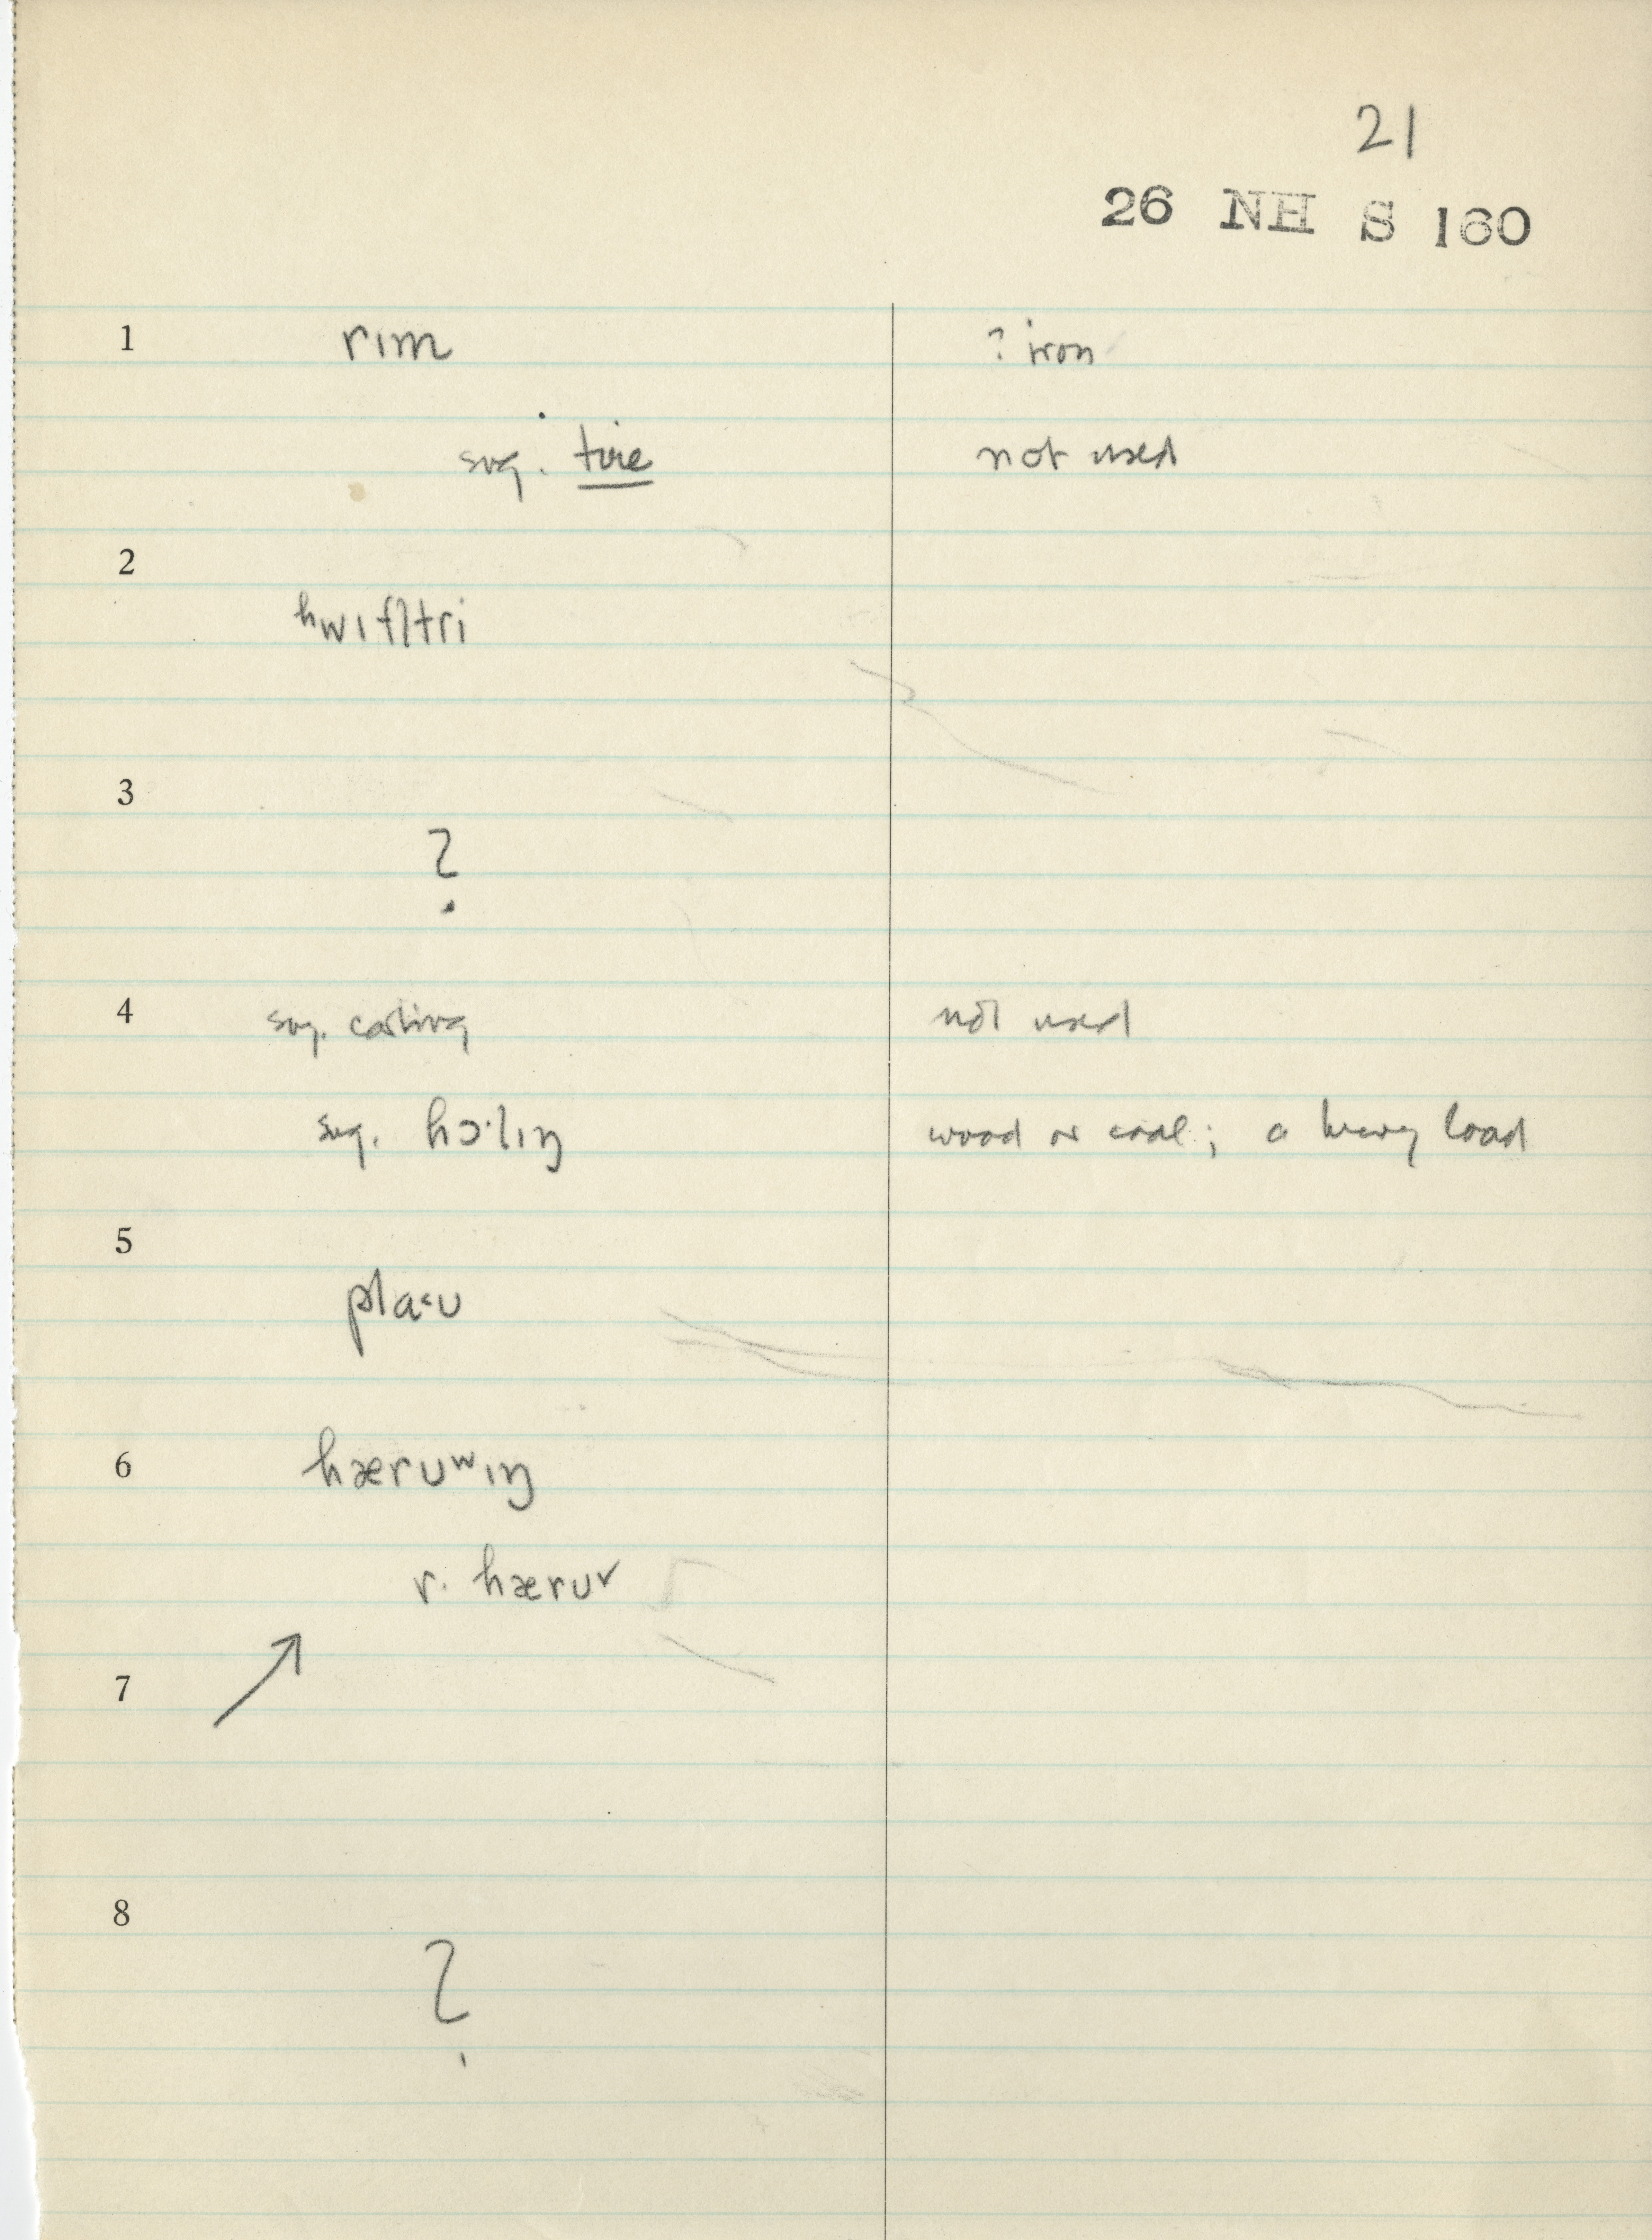 21
26 NH S 160
1 rɪm ? iron
sug. tire not used
2
ʰwɪfl̩tri
3
?
4 sug. carting not used
sug. hɔ·lɪŋ wood or coal; a heavy load
5
pla˂ʊ
6 hærʊʷɪŋ
r. hærʊ
7 ↗
8
?